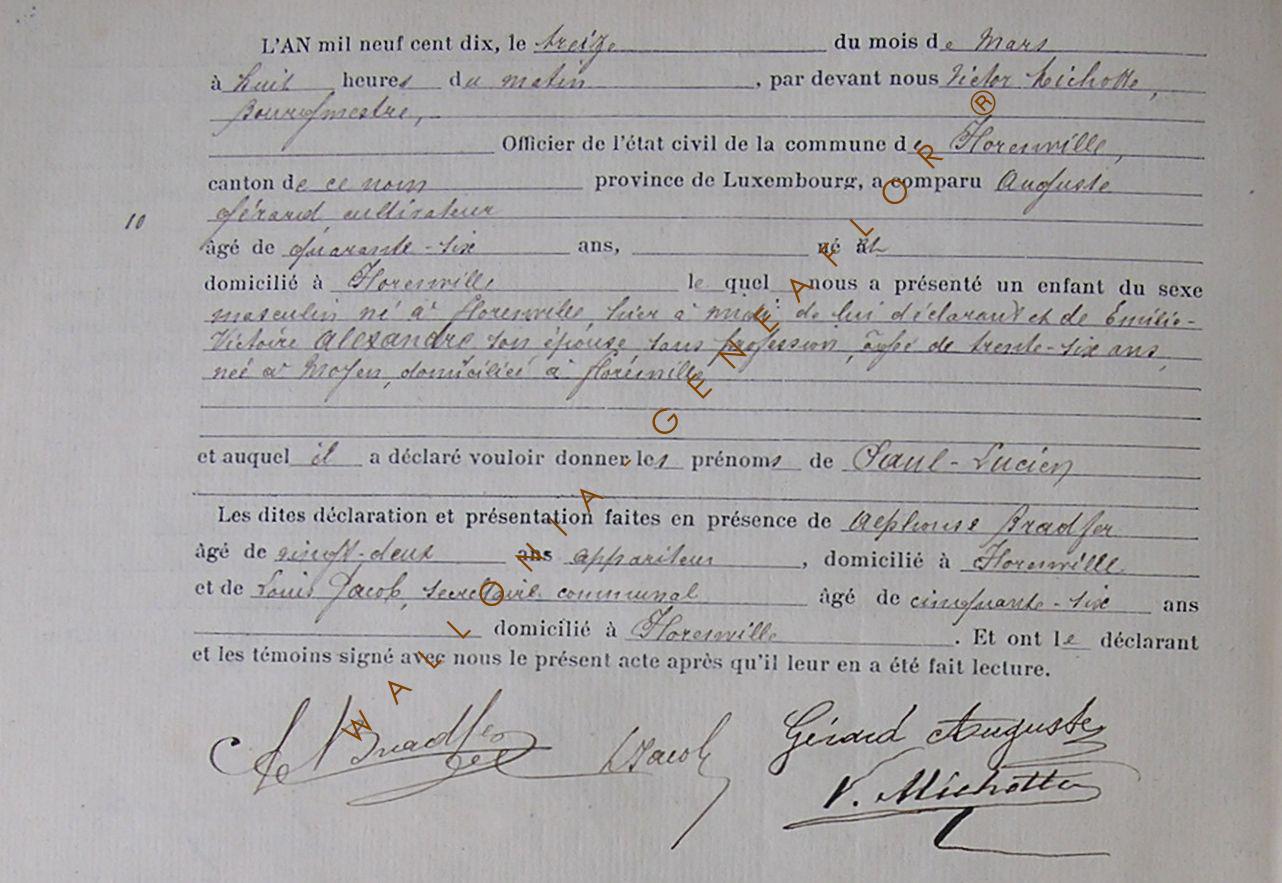 L'AN mil neuf cent dix, le treize du mois de Mars
à huit heures du matin, par devant nous Victor Michotte,
Bourgmestre,
Officier de l'état civil de la commune de Florenville,
canton de ce nom province de Luxembourg, a comparu Auguste
10 Gérard cultivateur
âgé de quarante-six ans, né à
domicilié à Florenville le quel nous a présenté un enfant du sexe
masculin né à Florenville hier à midi de lui déclarant et de Émilie-
Victoire Alexandre son épouse sans profession, âgé de trente-six ans,
née à Moyen, domiciliée à Florenville
et auquel il a déclaré vouloir donner les prénoms de Paul-Lucien
Les dites déclaration et présentation faites en présence de Alphonse Bradfer
âgé de vingt-deux ans appariteur, domicilié à Florenville
et de Louis Jacob, secrétaire communal âgé de cinquante-six ans
domicilié à Florenville. Et ont le déclarant
et les témoins signé avec nous le présent acte après qu'il leur en a été fait lecture.
Bradfer LJacob Gérard Auguste
V. Michotte
WALLONIA GENEAFLOR®